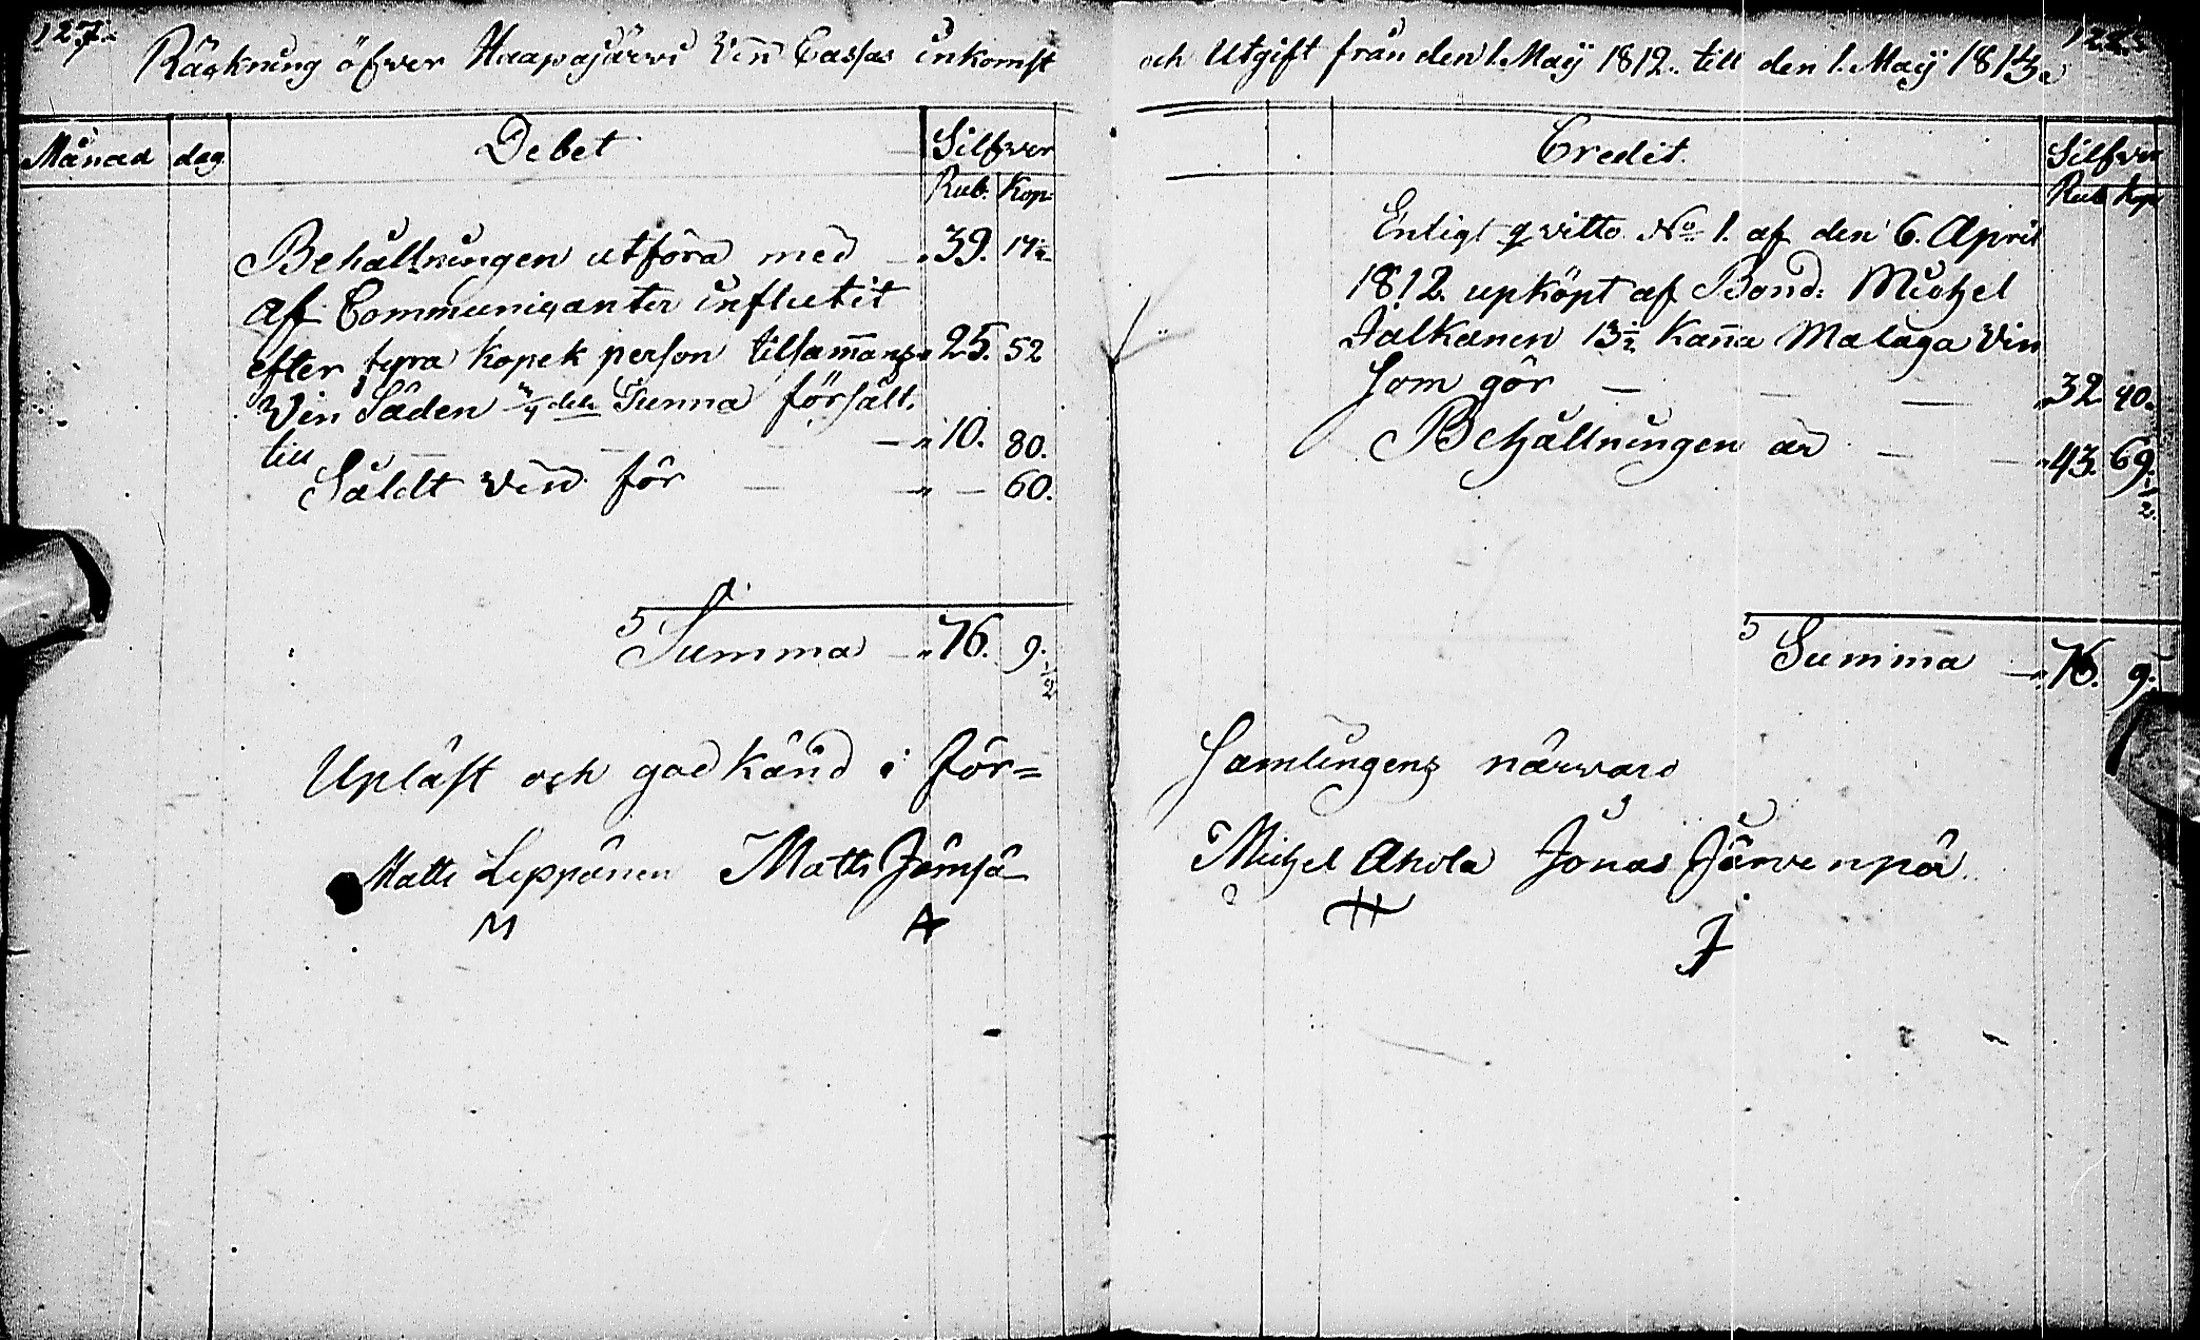 127.
Räckning öfwer Haapajärwi Vin Cassas inkomst
Månad dag Debet Silfwer
Rub. Kop:
Behållningen utföra med 39. 17½
af Communicanter influtit
efter fyra kopek person tilsam̄ans 25. 52
Vin Säden dels Tunna försålt.
till 10. 80.
Såldt vin för — 60.
Summa 76. 9.½
Upläst och godkänd i för=
Matts Leppänen Matts Jämsä
M A
128.
och Utgift från den 1. Maÿ 1812. till den 1. Maÿ 1813.
Credit. Silfver
Rub Kop
Enligt qvitto No 1. af den 6. April
1812. upköpt af Bond: Michel
Jalkanen 13½ Kan̄a Malaga Vin
som gör 32 40.
Behållningen är 43. 69.½
Summa 76. 9.
samlingens närvaro
Michel Ahola Jonas Järvenpää.
H J